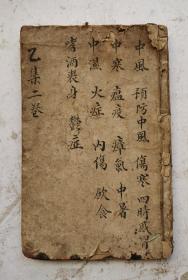 中風 預防中風 傷寒 四時感冒
中寒 瘟疫 瘴氣 中暑
中濕 火症 內傷 飲食
嗜酒喪身 鬱症
乙集二卷